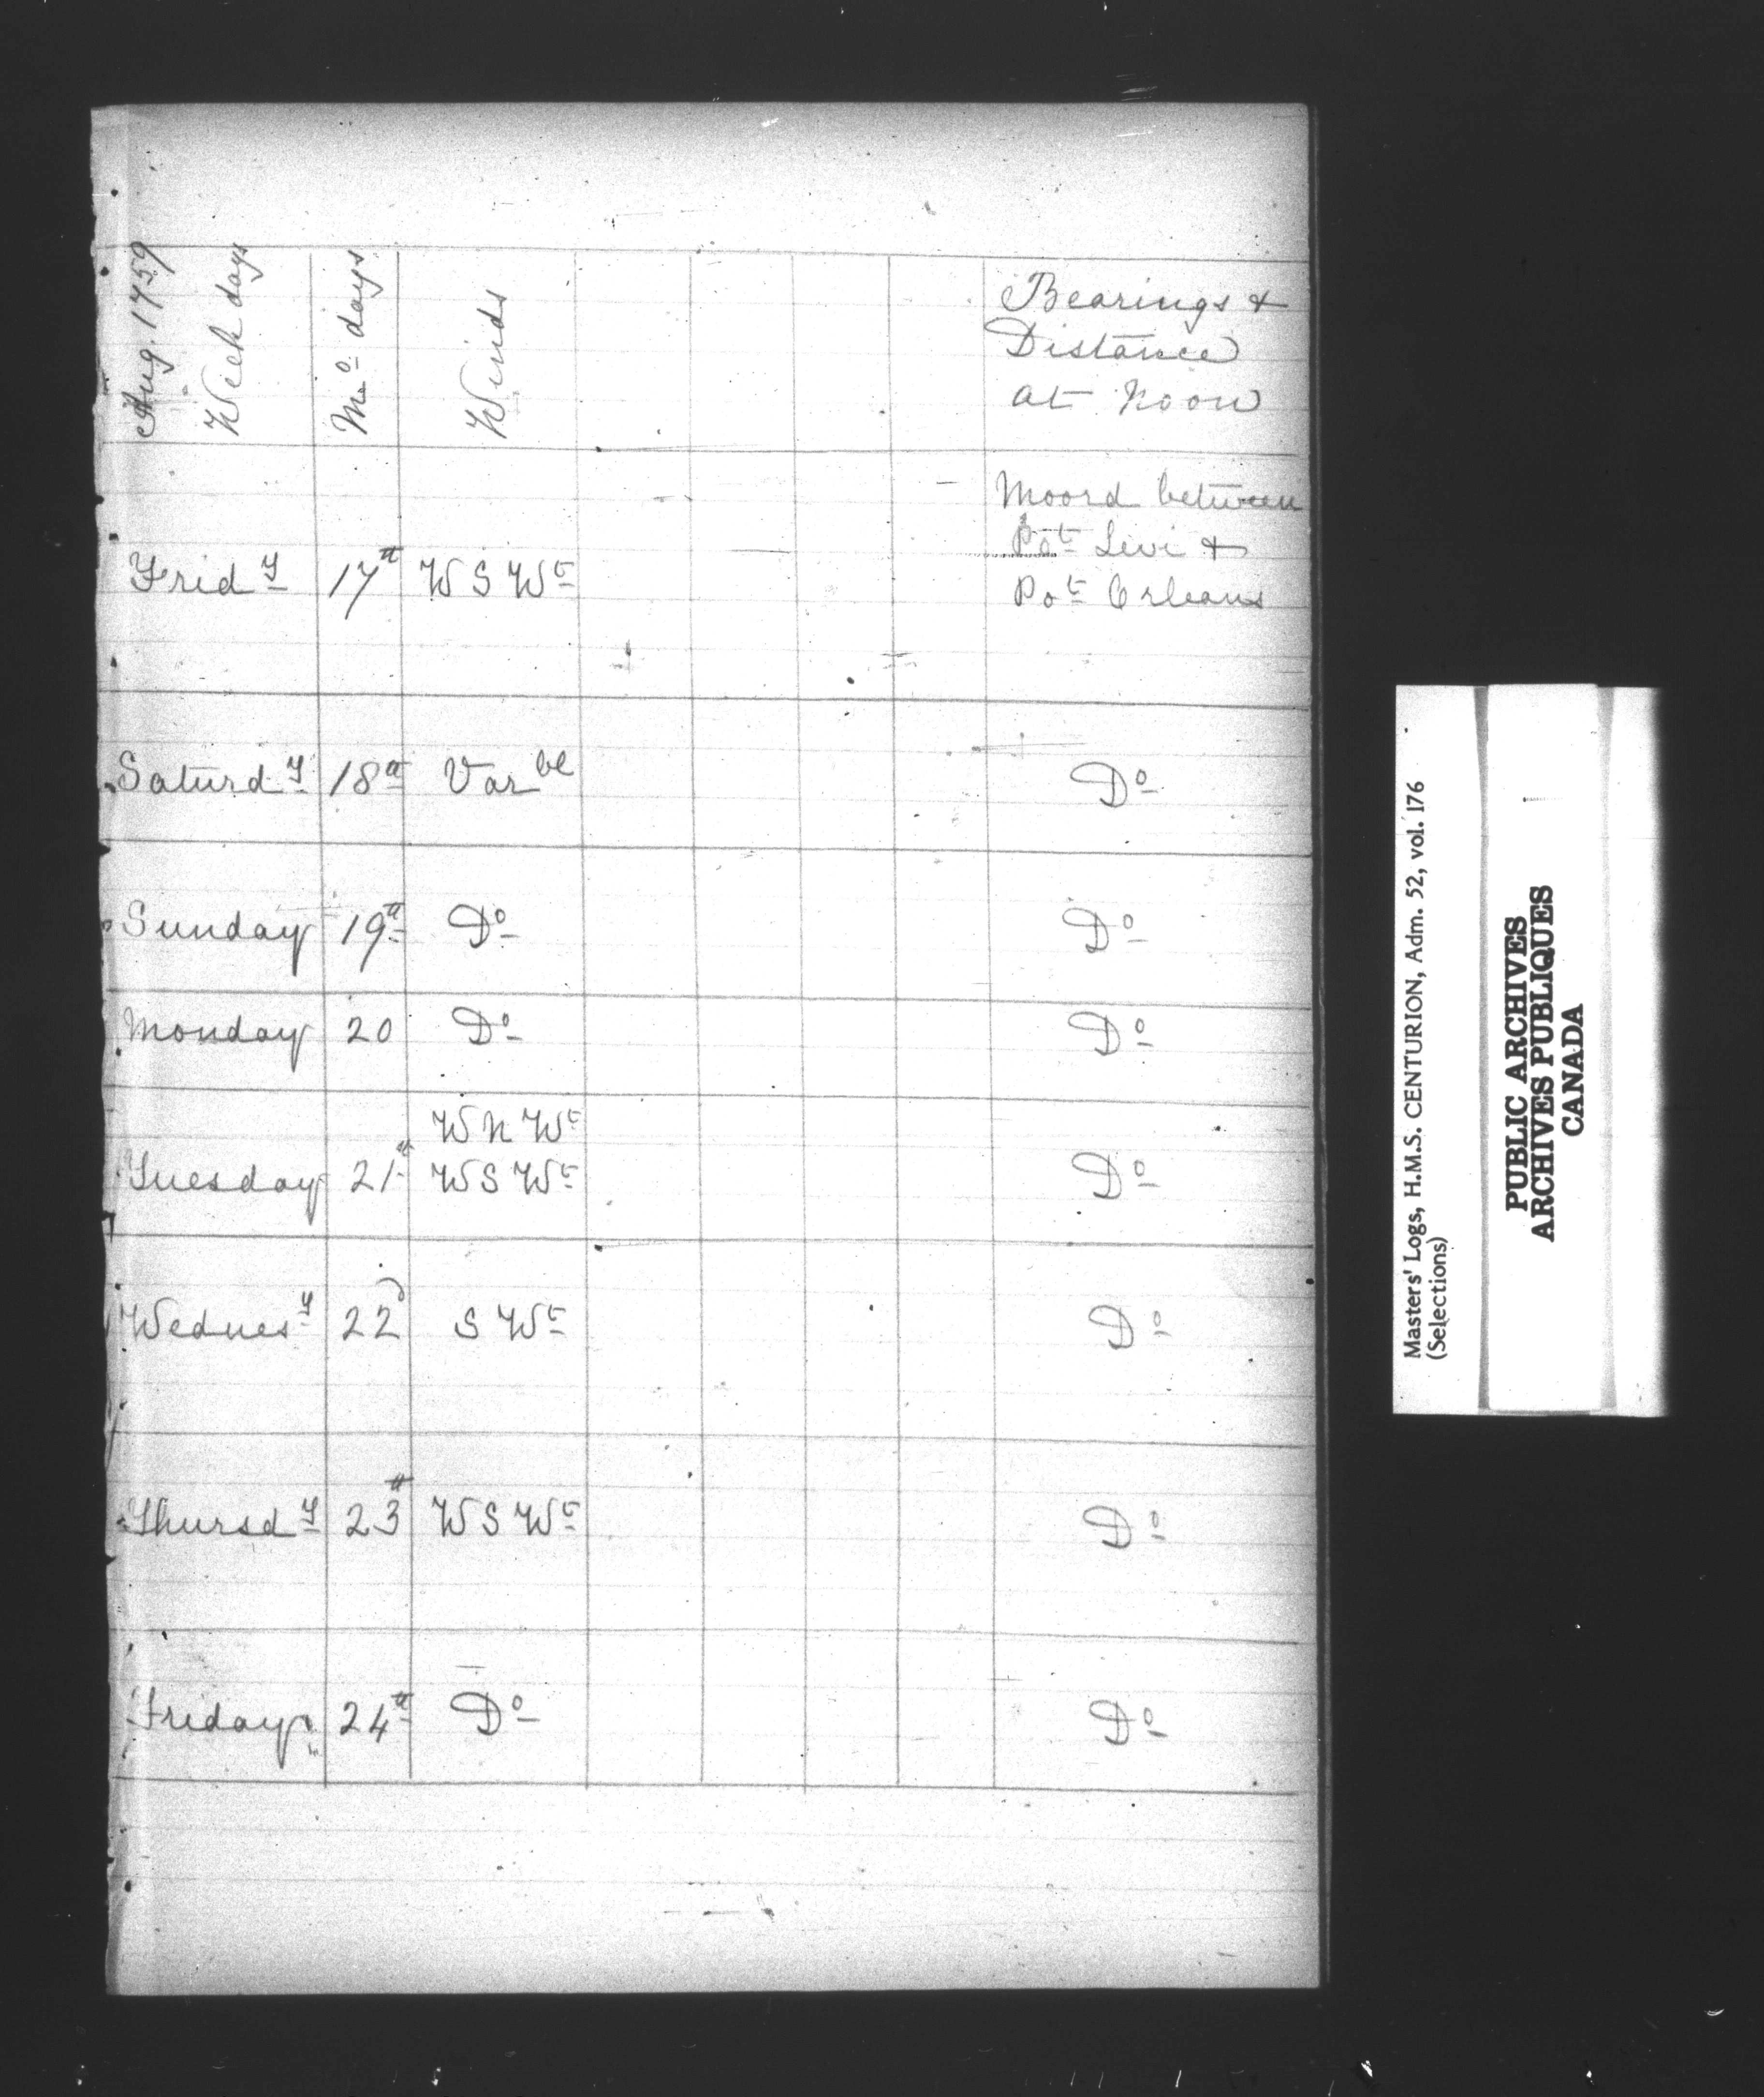 Aug. 1759
Week days
Mo. days
Winds
Bearings &
Distance
at Noon
Moord between
Pot Levi &
Pot Orleans
Fridy 17th WSWt
Saturdy 18th Varbl Do
Sunday 19th Do Do
Monday 20 Do Do
WNWt
Tuesday 21st WSWt Do
Wednesy 22d SWt Do
Thursdy 23d WSWt Do
Friday 24th Do Do
Masters' Logs, H.M.S. CENTURION, Adm. 52, vol. 176
(Selections)
PUBLIC ARCHIVES
ARCHIVES PUBLIQUES
CANADA